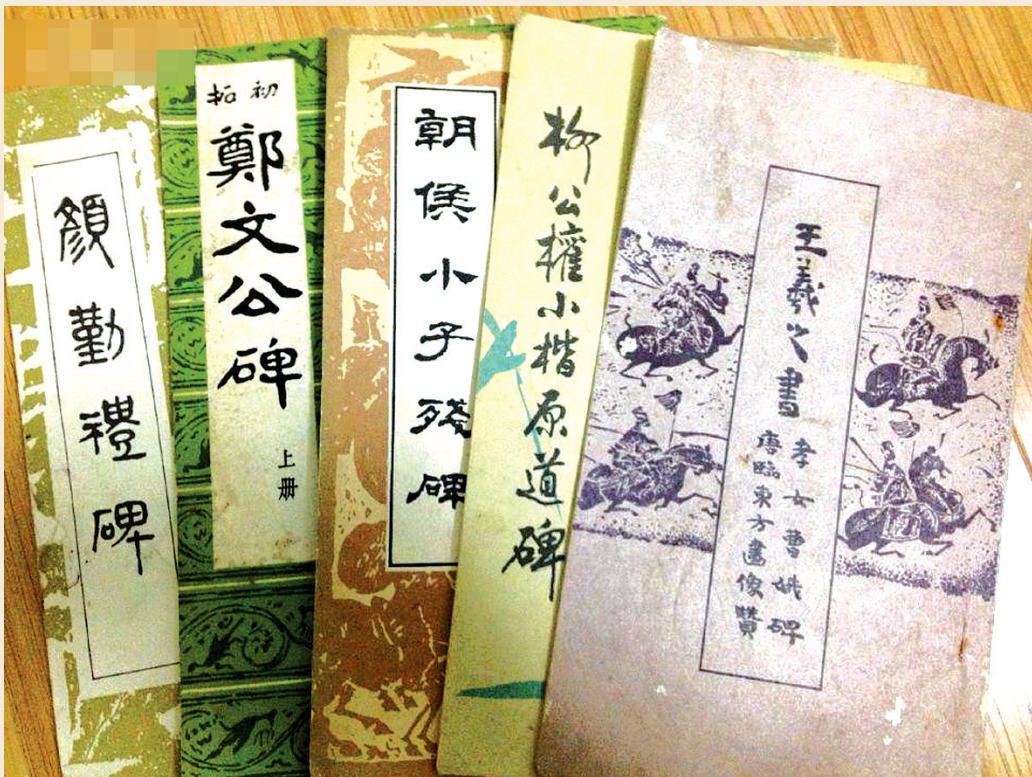 顏勤禮碑
初拓
鄭文公碑
上册
朝侯小子殘碑
柳公權小楷原道碑
王羲之書
孝女曹娥碑
唐臨東方畫像贊